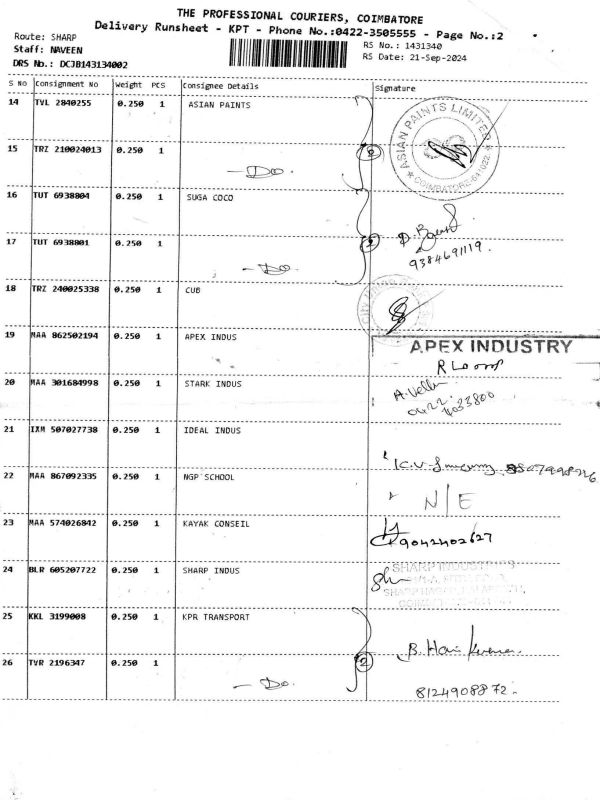 THE PROFESSIONAL COURIERS, COIMBATORE
Delivery Runsheet - KPT - Phone No.:0422-3505555 - Page No.:2
Route: SHARP
RS No.: 1431340
Staff: NAVEEN
RS Date: 21-Sep-2024
DRS No.: DCJB143134002
S NO Consignment No Weight PCS Consignee Details Signature
14 TVL 2840255 0.250 1 ASIAN PAINTS
ASIAN PAINTS LIMITED
COIMBATORE-641022
15 TRZ 210024013 0.250 1
2
- Do
16 TUT 6938804 0.250 1 SUGA COCO
17 TUT 6938801 0.250 1
2
- Do
9384691119.
18 TRZ 240025338 0.250 1 CUB
19 MAA 862502194 0.250 1 APEX INDUS
APEX INDUSTRY
20 MAA 301684998 0.250 1 STARK INDUS
0422
21 IXM 507027738 0.250 1 IDEAL INDUS
22 MAA 867092335 0.250 1 NGP SCHOOL
N/E
23 MAA 574026842 0.250 1 KAYAK CONSEIL
9042402627
24 BLR 605207722 0.250 1 SHARP INDUS
SHARP INDUSTRIES
25 KKL 3199008 0.250 1 KPR TRANSPORT
26 TVR 2196347 0.250 1
2
- Do
8124908872.